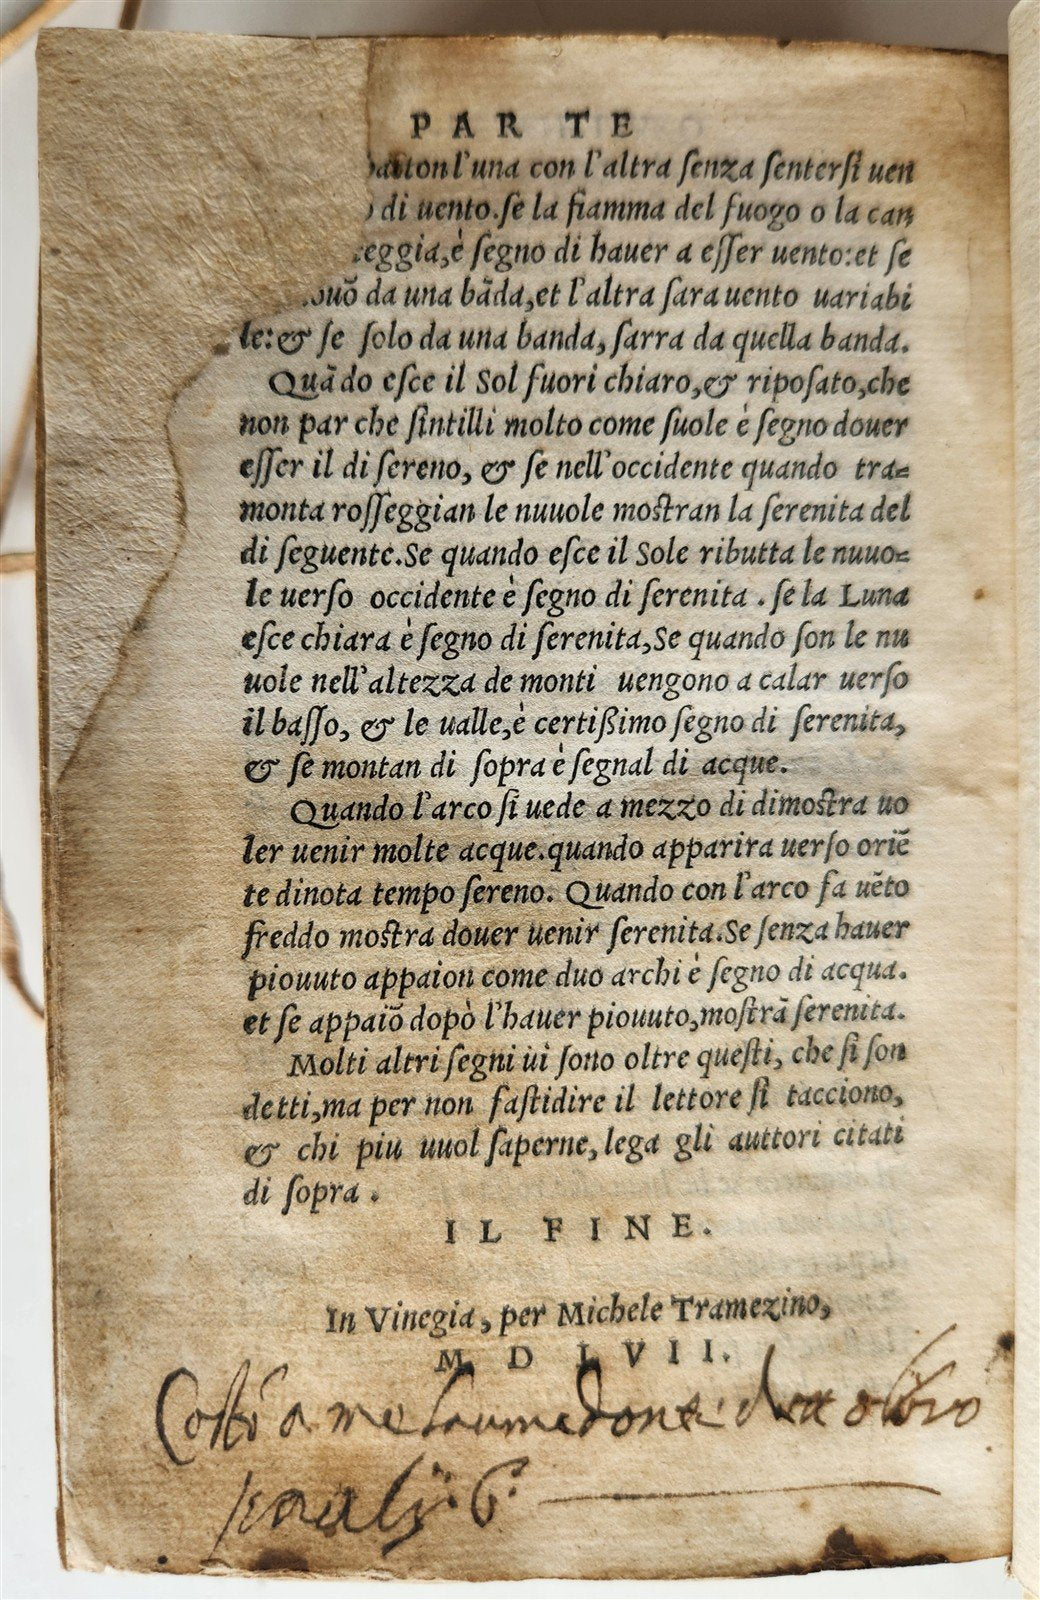 PARTE
l'una con l'altra senza sentersi uen
di uento.se la fiamma del fuogo o la can
eggia,è segno di hauer a esser uento:et se
da una bãda,et l'altra sara uento uariabi
le:& se solo da una banda,sarra da quella banda.
Quãdo esce il Sol fuori chiaro,& riposato,che
non par che sintilli molto come suole è segno douer
esser il di sereno, & se nell'occidente quando tra=
monta rosseggian le nuuole mostran la serenita del
di seguente.Se quando esce il Sole ributta le nuuo=
le uerso occidente è segno di serenita . se la Luna
esce chiara è segno di serenita,Se quando son le nu
uole nell'altezza de monti uengono a calar uerso
il basso, & le ualle,è certißimo segno di serenita,
& se montan di sopra è segnal di acque.
Quando l'arco si uede a mezzo di dimostra uo
ler uenir molte acque.quando apparira uerso oriẽ
te dinota tempo sereno. Quando con l'arco fa uẽto
freddo mostra douer uenir serenita.Se senza hauer
piouuto appaion come duo archi è segno di acqua.
et se appaiõ dopò l'hauer piouuto,mostrã serenita.
Molti altri segni ui sono oltre questi, che si son
detti,ma per non fastidire il lettore si tacciono,
& chi piu uuol saperne,lega gli auttori citati
di sopra .
IL FINE.
In Vinegia, per Michele Tramezino,
M D LVII.
a me